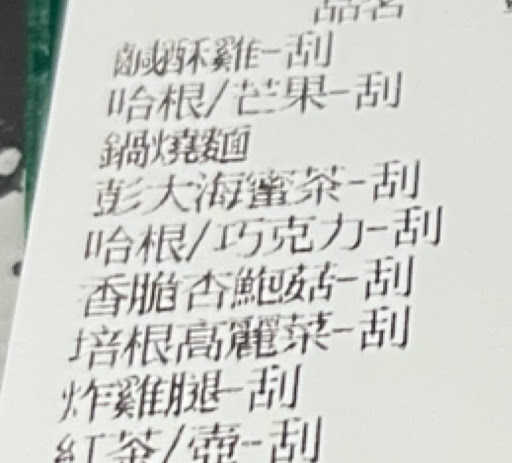 品名
鹹酥雞-刮
哈根/芒果-刮
鍋燒麵
彭大海蜜茶-刮
哈根/巧克力-刮
香脆杏鮑菇-刮
培根高麗菜-刮
炸雞腿-刮
紅茶/壺-刮